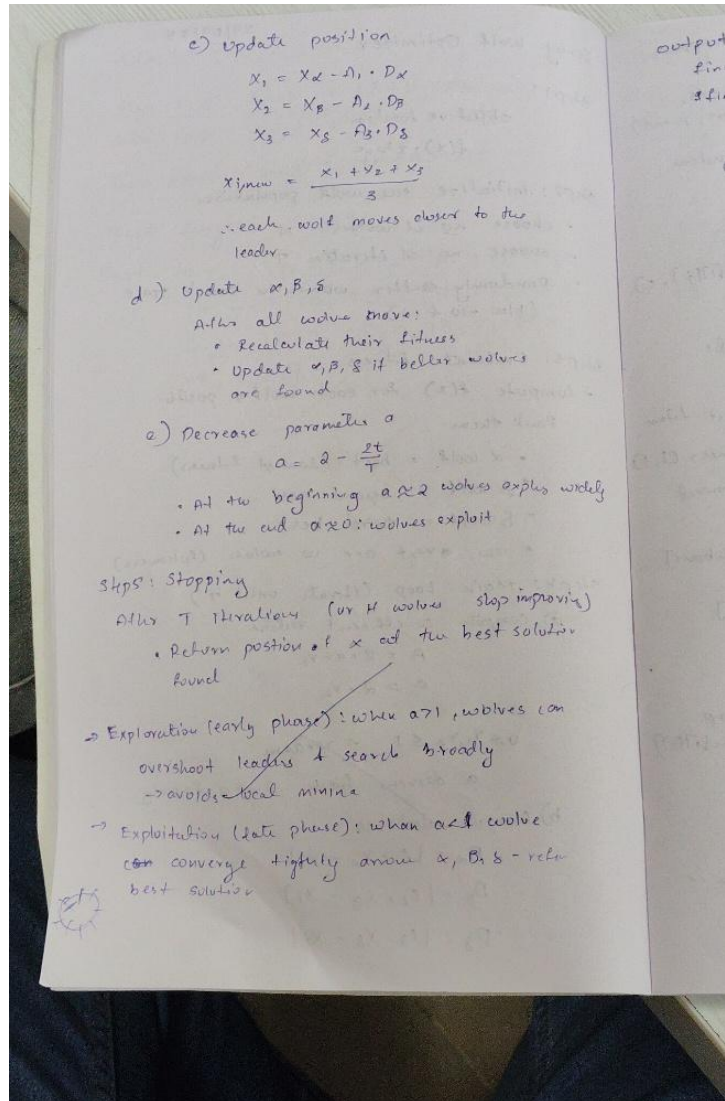 c) update position
X₁ = Xα - A₁ · Dα
X₂ = Xβ - A₂ · Dβ
X₃ = Xδ - A₃ · Dδ
Xi,new = (X₁ + X₂ + X₃) / 3
∴ each wolf moves closer to the
leader.
d) Update α, β, δ
After all wolve move:
• Recalculate their fitness
• Update α, β, δ if better wolves
are found
e) Decrease parameter a
a = 2 - 2t/T
• At the beginning a ≈ 2 wolves explore widely
• At the end a ≈ 0: wolves exploit
Step 5: Stopping
After T iterations (or if wolves stop improving)
• Return postion of x as the best solution
found
→ Exploration (early phase): when a>1, wolves can
overshoot leaders & search broadly
→ avoids local minima
→ Exploitation (late phase): when a<1 wolve
converge tightly α, β, δ -
best solution
output